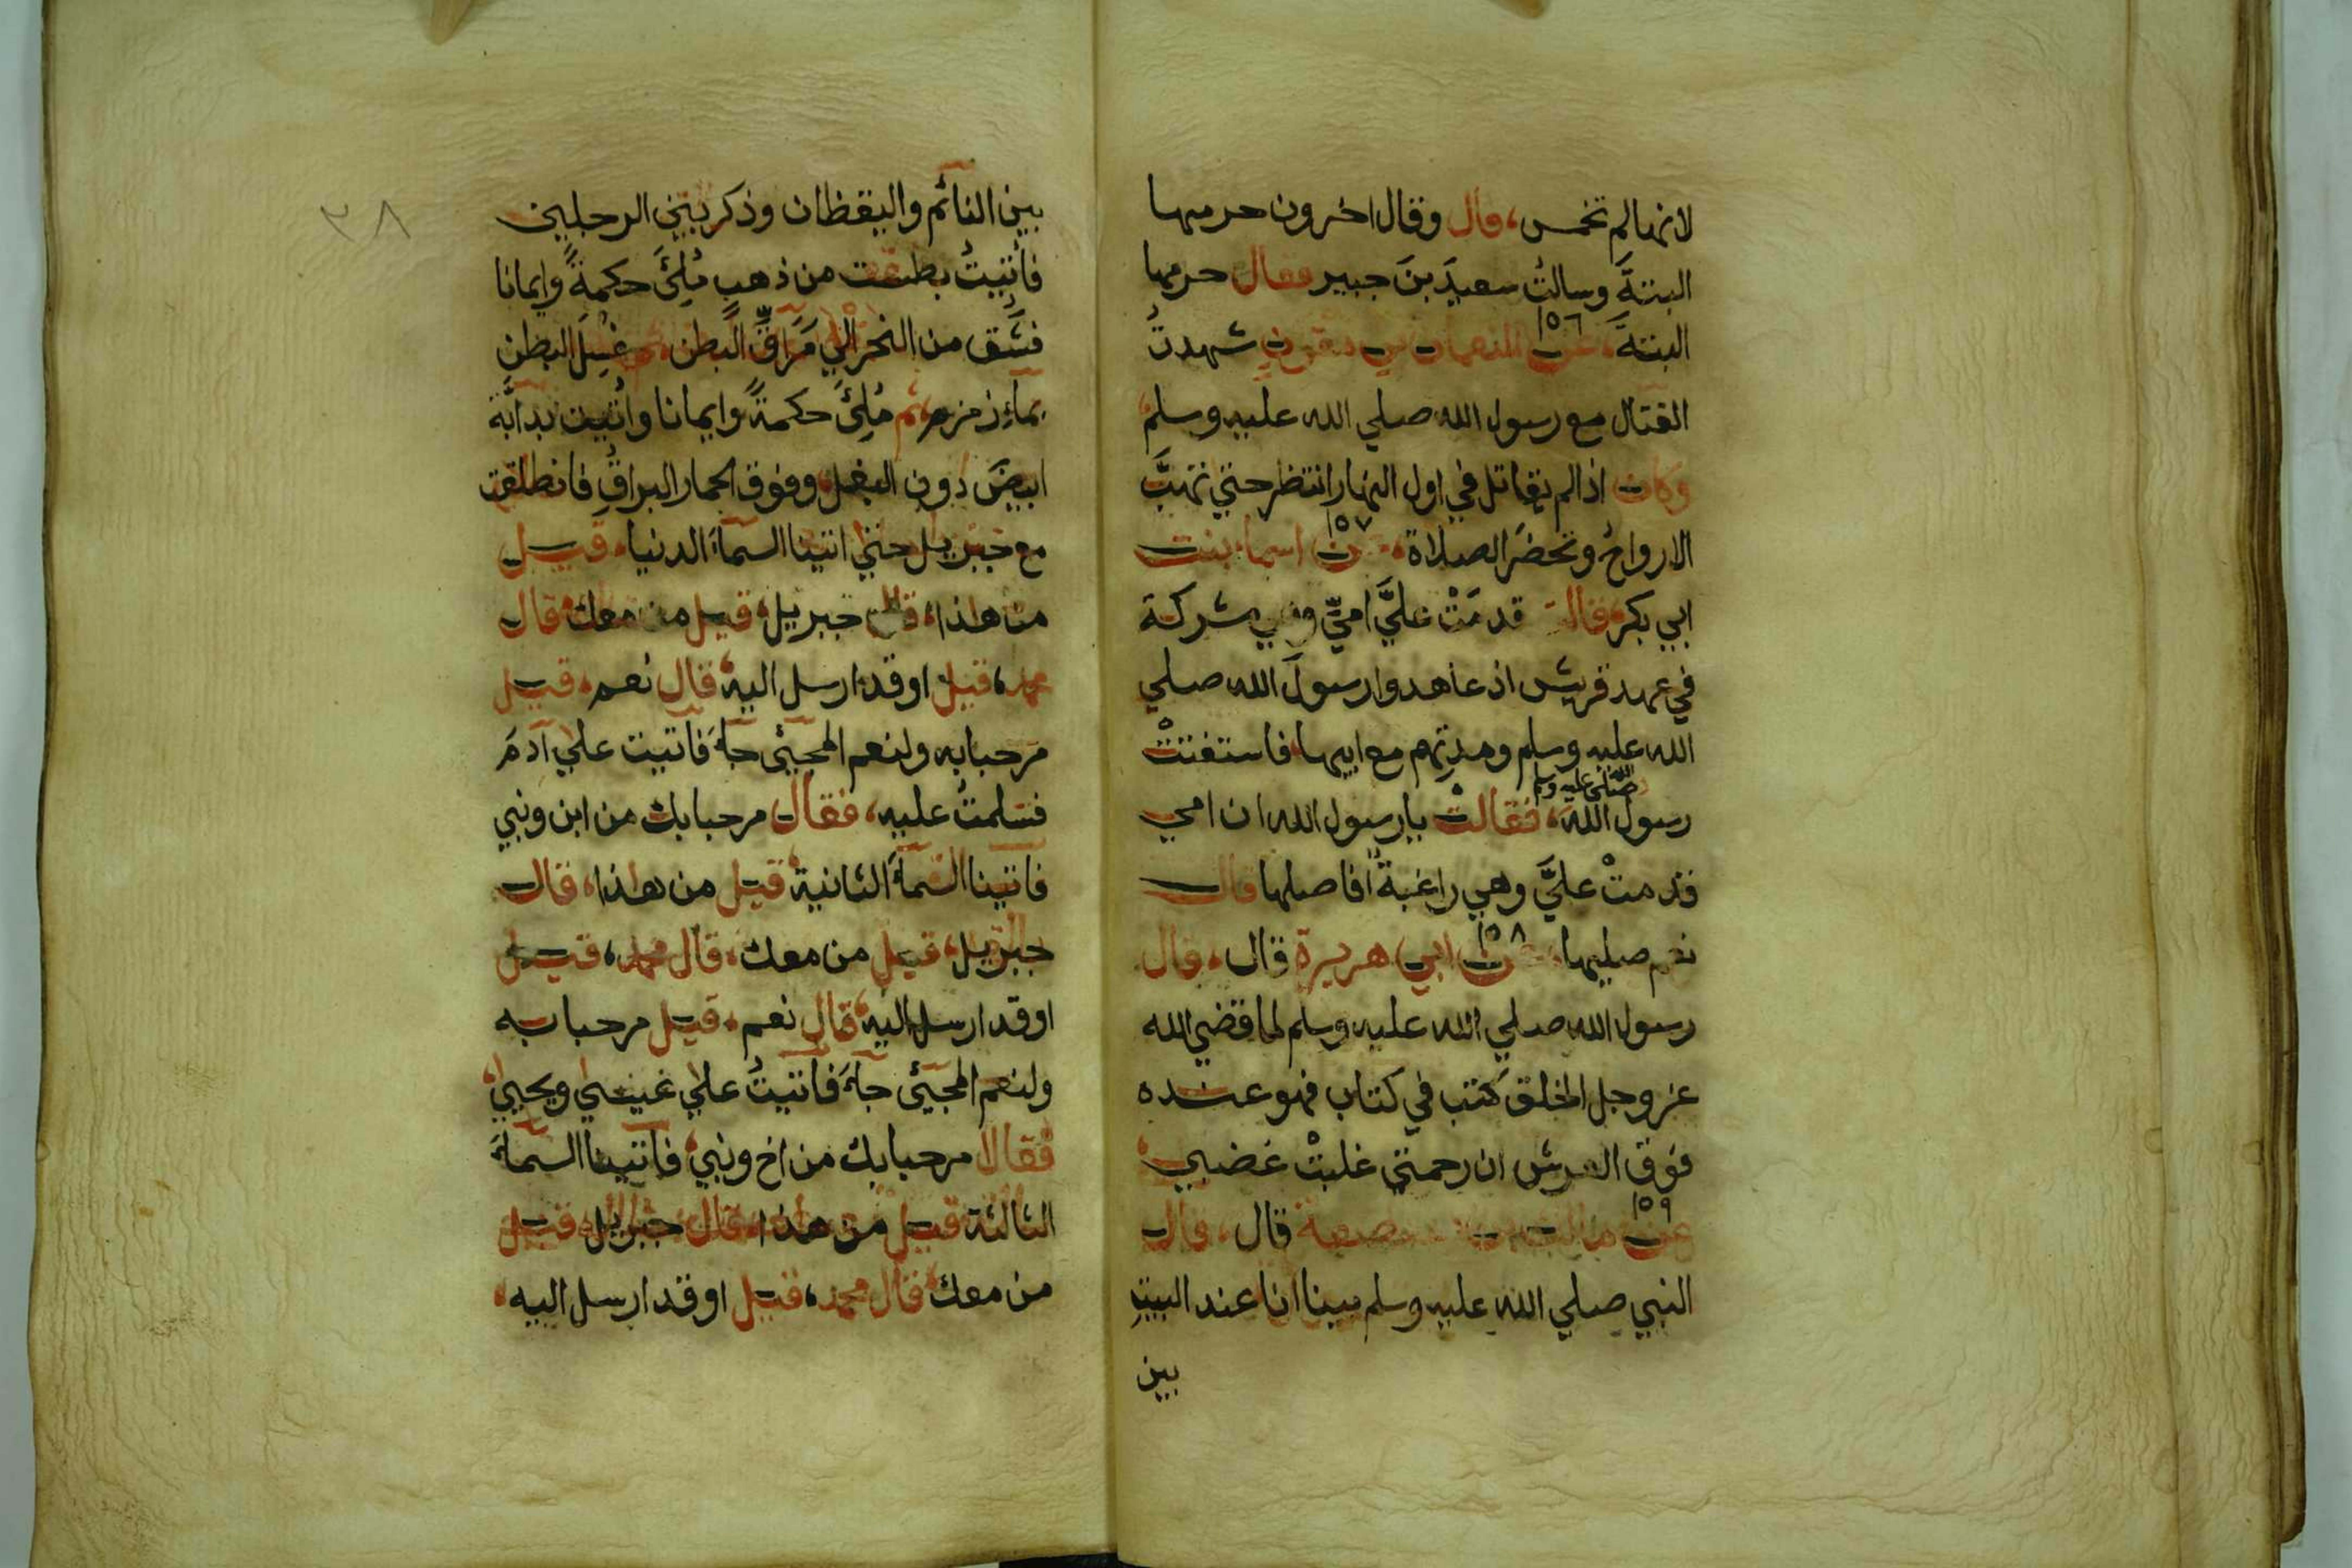 لانها لم تخمس، قال وقال اخرون حرمها
البتةَ وسالتُ سعيدَ بنَ جبير فقال حرمها
١٥٦
البتةَ، عن النعمان بن مقرن شهدتُ
القتال مع رسول الله صلي الله عليه وسلم
وكان اذا لم يقاتل في اول النهار انتظر حتي تهبَّ
١٥٧
الارواحُ وتحضرَ الصلاة، عن اسماء بنت
ابي بكر، قالت قدمَتْ عليَّ امي وهي مشركة
في عهد قريش اذ عاهدوا رسولَ الله صلي
الله عليه وسلم ومدتهم مع ابيها، فاستفتتْ
صلى الله عليه وسلم
رسولَ الله، فقالتْ يا رسول الله ان امي
قدمتْ عليَّ وهي راغبةٌ افاصلها قال
١٥٨
نعم صليها، عن ابي هريرة قال، قال
رسول الله صلي الله عليه وسلم لما قضي الله
عز وجل الخلق كتب في كتاب فهو عنده
فوق العرش ان رحمتي غلبتْ غضبي
١٥٩
عن مالك بن صعصعة قال، قال
النبي صلي الله عليه وسلم بينا انا عند البيت
بين
٣٨
بين النائم واليقظان وذكر بين الرجلين
فأُتيتُ بطست من ذهبٍ مُلِئَ حكمةً وايمانا
فشُق من النحر الي مَرَاقِّ البطن، ثم غُسِلَ البطن
بماءِ زمزم، ثم مُلِئَ حكمةً وايمانا واُتيت بدابَّة
ابيضَ دون البغل وفوق الحمار البراق فانطلقت
مع جبريل حتي اتينا السماءَ الدنيا، قيل
من هذا، قال جبريل، قيل من معك، قال
محمد، قيل اوقد ارسل اليه، قال نعم، قيل
مرحبا به ولنعم المجيئ جاءَ فاتيت علي آدمَ
فسلمتُ عليه، فقال مرحبا بك من ابن ونبي
فاتينا السماءَ الثانية، قيل من هذا، قال
جبريل، قيل من معك، قال محمد، قيل
اوقد ارسل اليه، قال نعم، قيل مرحبا به
ولنعم المجيئ جاءَ فاتيتُ علي عيسي ويحيي،
فقالا مرحبا بك من اخ ونبي، فاتينا السماءَ
الثالثة قيل من هذا، قال جبريل، قيل
من معك، قال محمد، قيل اوقد ارسل اليه،